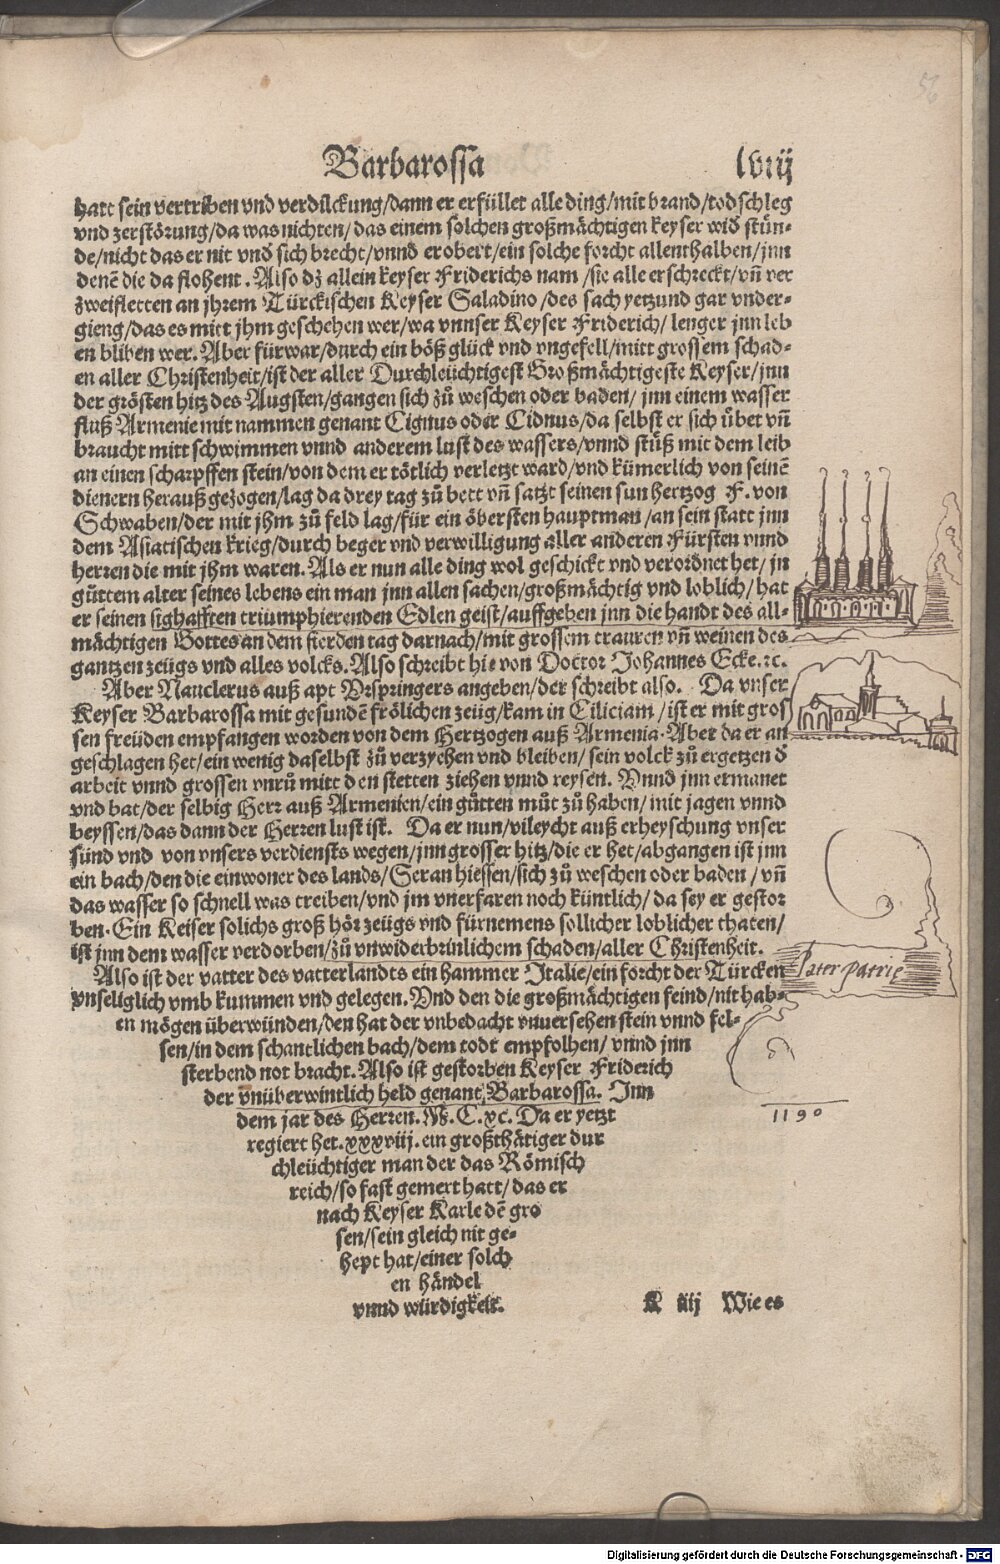 56
Barbarossa lvij
hatt sein vertriben vnd verdilckung/dann er erfüllet alle ding/mit brand/todschleg
vnd zerstörung/da was nichten/das einem solchen großmächtigen keyser wid̄ stün-
de/nicht das er nit vnd̄ sich brecht/vnnd erobert/ein solche forcht allenthalben/jnn
denē die da flohent. Also dz allein keyser Friderichs nam/sie alle erschreckt/vn̄ ver
zweifletten an jhrem Türckischen Keyser Saladino/des sach yetzund gar vnder-
gieng/das es mitt jhm geschehen wer/wa vnnser Keyser Friderich/lenger jnn leb
en bliben wer. Aber fürwar/durch ein böß glück vnd vngefell/mitt grossem schad-
en aller Christenheit/ist der aller Durchleüchtigest Großmächtigeste Keyser/jnn
der grösten hitz des Augsten/gangen sich zů weschen oder baden/jnn einem wasser
fluß Armenie mit nammen genant Cignus oder Cidnus/da selbst er sich übet vn̄
braucht mitt schwimmen vnnd anderem lust des wassers/vnnd stůß mit dem leib
an einen scharpffen stein/von dem er tötlich verletzt ward/vnd kümerlich von seinē
dienern herauß gezogen/lag da drey tag zů bett vn̄ satzt seinen sun hertzog F. von
Schwaben/der mit jhm zů feld lag/für ein öbersten hauptman/an sein statt jnn
dem Asiatischen krieg/durch beger vnd verwilligung aller anderen Fürsten vnnd
herren die mit jhm waren. Als er nun alle ding wol geschickt vnd verordnet het/jn
güttem alter seines lebens ein man jnn allen sachen/großmächtig vnd loblich/hat
er seinen sighafften triumphierenden Edlen geist/auffgeben jnn die handt des all-
mächtigen Gottes an dem fierden tag darnach/mit grossem trauren vn̄ weinen des
gantzen zeügs vnd alles volcks. Also schreibt hie von Doctor Johannes Ecke.ꝛc.
Aber Nauclerus auß apt Vrspringers angeben/der schreibt also. Da vnser
Keyser Barbarossa mit gesundē frölichen zeüg/kam in Ciliciam/ist er mit gros
sen freüden empfangen worden von dem Hertzogen auß Armenia. Aber da er an
geschlagen het/ein wenig daselbst zů verzyehen vnd bleiben/sein volck zů ergetzen d̄
arbeit vnnd grossen vnrů mitt den stetten ziehen vnnd reysen. Vnnd jnn ermanet
vnd bat/der selbig Herr auß Armenien/ein gůtten můt zů haben/mit jagen vnnd
beyssen/das dann der Herren lust ist. Da er nun/vileycht auß erheyschung vnser
sünd vnd von vnsers verdiensts wegen/jnn grosser hitz/die er het/abgangen ist jnn
ein bach/den die einwoner des lands/Seran hiessen/sich zů weschen oder baden/vn̄
das wasser so schnell was treiben/vnd jm vnerfaren noch küntlich/da sey er gestor
ben. Ein Keiser solichs groß hör zeügs vnd fürnemens sollicher loblicher thaten/
ist jnn dem wasser verdorben/zů vnwiderbrinlichem schaden/aller Christenheit.
Also ist der vatter des vatterlandts ein hammer Italie/ein forcht der Türcken
Pater patrie
vnseliglich vmb kummen vnd gelegen. Vnd den die großmächtigen feind/nit hab-
en mögen überwünden/den hat der vnbedacht vnuersehen stein vnnd fel-
sen/in dem schantlichen bach/dem todt empfolhen/vnnd jnn
sterbend not bracht. Also ist gestorben Keyser Friderich
der vnüberwintlich held genant Barbarossa. Inn
dem jar des Herren. M. C. xc. Da er yetzt
1190
regiert het. xxxviij. ein großthätiger dur
chleüchtiger man der das Römisch
reich/so fast gemert hatt/das er
nach Keyser Karle dē gro
sen/sein gleich nit ge-
hept hat/einer solch
en händel
vnnd würdigkeit.
K iiij Wie es
Digitalisierung gefördert durch die Deutsche Forschungsgemeinschaft - DFG